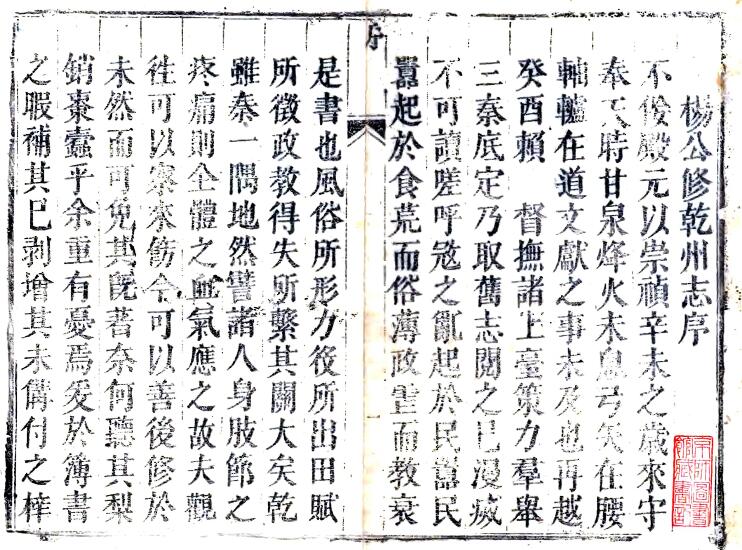 楊公修乾州志序
不佞殿元以崇禎辛未之歲來守
奉天時甘泉烽火未息弓矢在腰
軸轤在道文獻之事未及也再越
癸酉賴 督撫諸上臺策力羣舉
三秦底定乃取舊志閱之已漫
不可讀嗟呼寇之亂起於民囂民
囂起於食荒而俗薄政而教衰
序
是書也風俗所形力役所出田賦
所徵政教得失所繫其關大矣乾
雖秦一隅地然譬諸人身肢節之
疼痛則全體之血氣應之故夫觀
徃可以察來飭今可以善後修於
未然而可免其旣著奈何聽其梨
銷棗蠹乎余重有憂焉爰於簿書
之暇補其已剥增其未備付之梓
京師圖書
館藏書